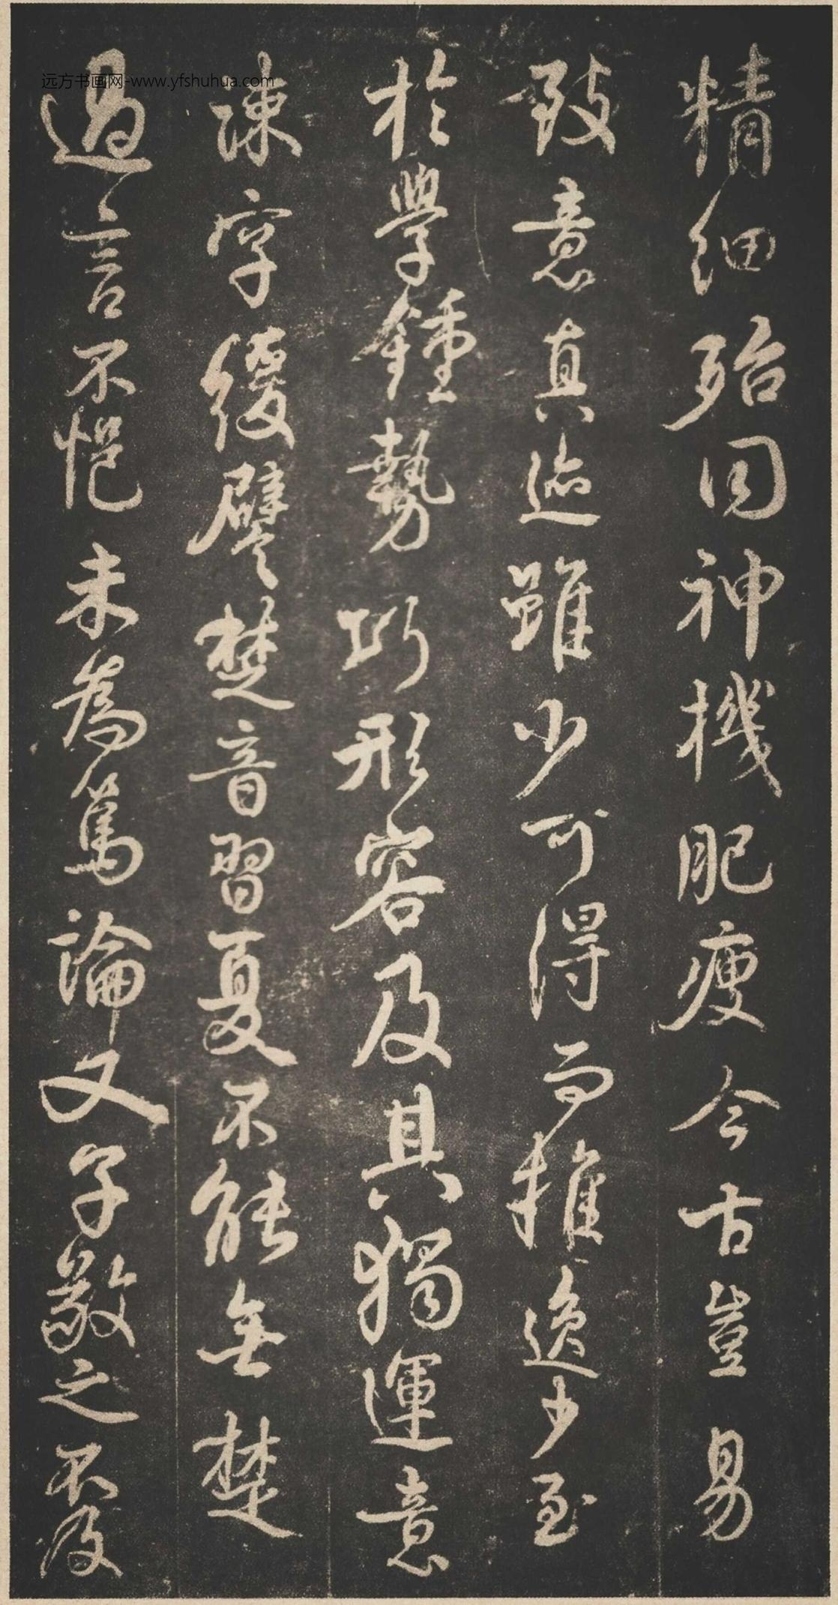 精細殆同神機肥瘦今古豈易
致意真迹雖少可得而推逸少至
於學鍾勢巧形容及其獨運意
疎字緩譬楚音習夏不能無楚
過言不悒未為篤論又子敬之不及
远方书画网-www.yfshuhua.com